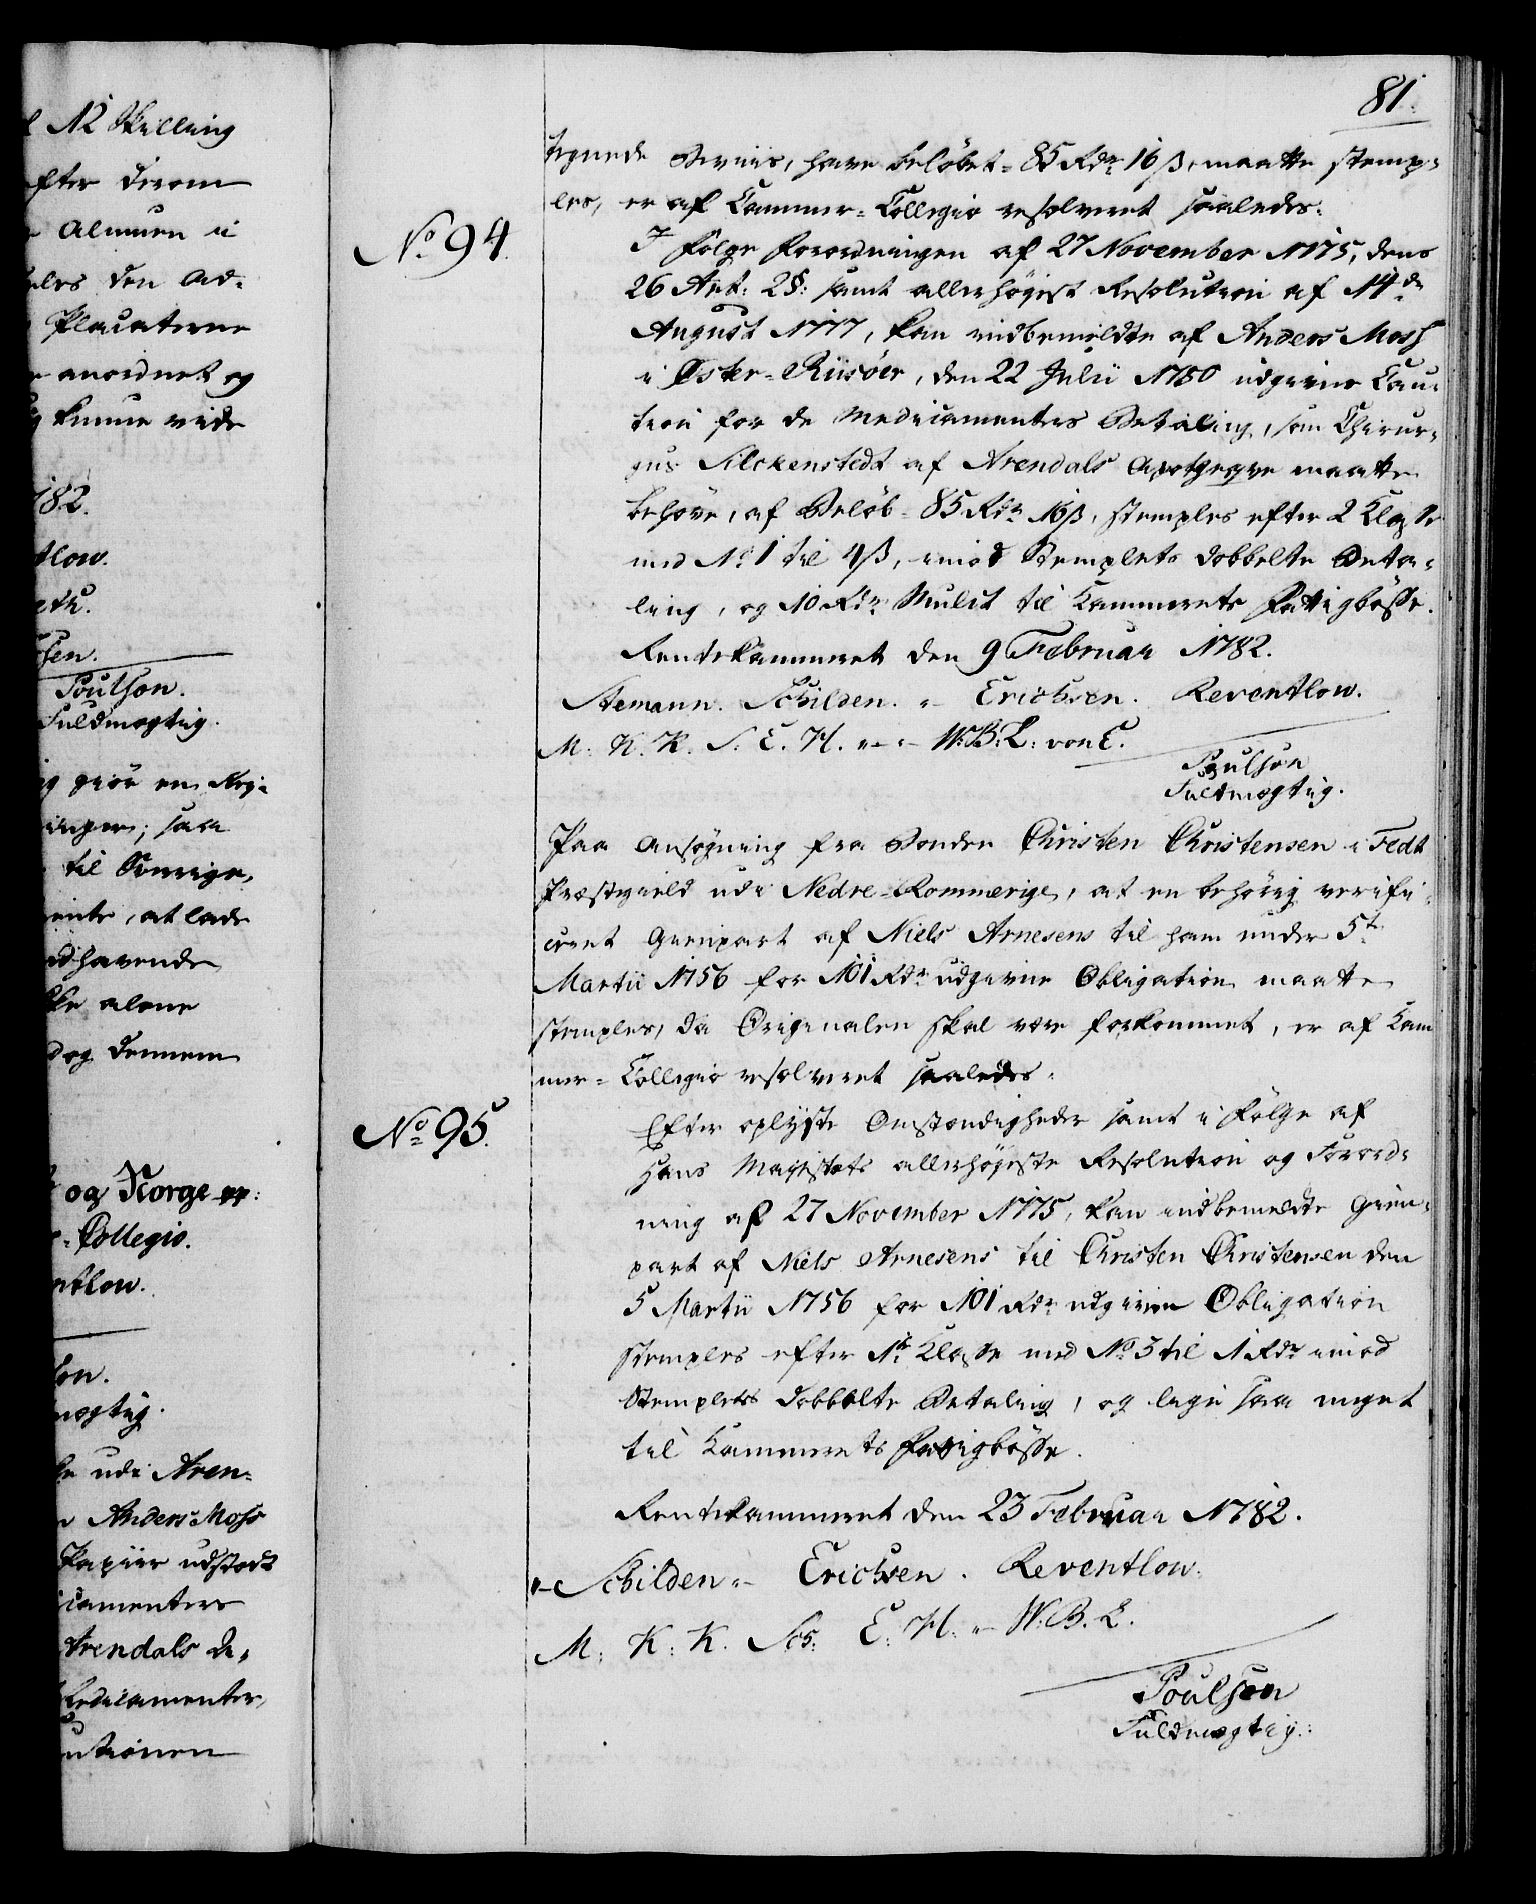 l 12 Skilling
efter derom
Almuen i
eles den Ad-
Placaterne
anordnet og
kunne vide
182.
tlow.
eth.
sen.
Poulson.
Fuldmægtig.
giør en
til Sverige,
ente, at lade
edhavende
ke alene
dog dennem
og Norge pp:
- Collegio.
ntlow.
son.
mægtig.
udi Aren-
Anders Moss
Papiir udstædt
icamenters
Arendals
Medicamenter,
utionen
81.
tegnede Beviis, hans Beløbet = 85 Rdr 16 ß, maatte stemp-
les, er af Cammer-Collegio resolveret saaledes:
No 94.
I Følge Forordningen af 27 November 1775, dens
26 Art: 2 §: samt allerhøiest Resolution af 14de
August 1777, kan indbemeldte af Anders Moss
i Øster-Riisøer, den 22 Julii 1780 udgivne Cau-
tion for de Medicamenters Betaling, som Chirur-
gus Silckenstedt af Arendals Apotheque maatte
behøve, af Beløb = 85 Rdr 16 ß, stemples efter 2 Klasse
med No 1 til 4 ß, imod Stemplets dobbelte Beta-
ling, og 10 Rdr Mulct til Kammerets Fattigbøsse.
Rentekammeret den 9 Februar 1782.
Stemann. Schilden. - Erichsen. Reventlow.
M. K. K. S. E. H. - - W: B: L: von E.
Poulson
Fuldmægtig.
Paa Ansøgning fra Bonden Christen Christensen i Fedt
Præstegield udi Nedre-Rommerige, at en behørig verifi-
ceret Gienpart af Niels Arnesens til ham under 5te
Martii 1756 for 101 Rdr udgivne Obligation maatte
stemples, da Originalen skal være forkommet, er af Kam
mer-Collegio resolveret saaledes:
No 95.
Efter oplyste Omstændigheder samt i Følge af
Hans Majestæts allerhøieste Resolution og Forord-
ning af 27 November 1775, kan indbemeldte Gien-
part af Niels Arnesens til Christen Christensen den
5 Martii 1756 for 101 Rdr udgivne Obligation
stemples efter 1te Klasse med No 3 til 1 Rdr imod
Stemplets dobbelte Betaling, og ligesaa meget
til Kammerets Fattigbøsse.
Rentekammeret den 23 Februar 1782.
- Schilden - Erichsen. Reventlow.
M. K: K. Sch: E: H. - W. B. L.
Poulson
Fuldmægtig.